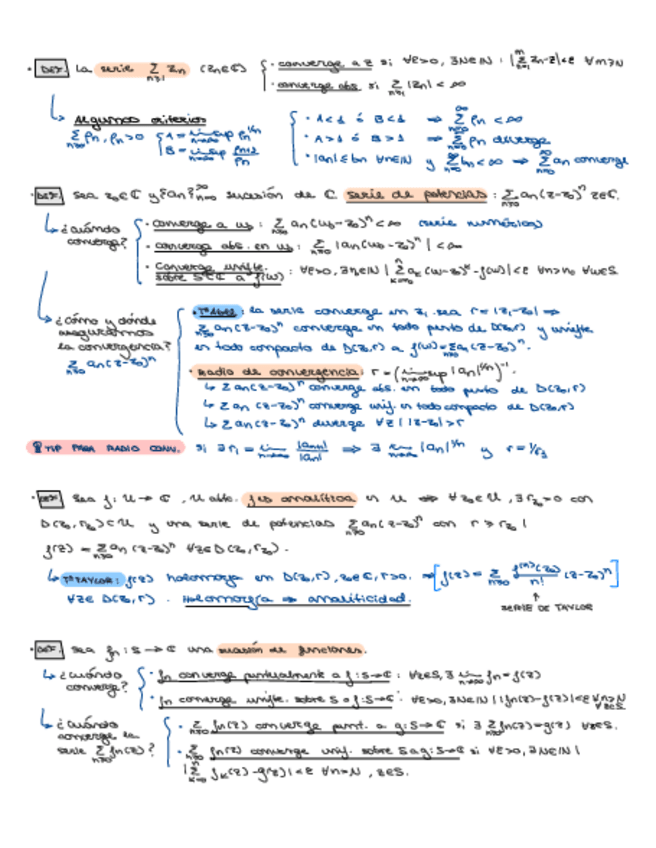 · DEF. La serie Σ_{n≥1} z_n (z_n∈ℂ) { · converge a z si ∀ε>0, ∃N∈ℕ : |Σ_{n=1}^{m} z_n - z|<ε ∀m≥N
· converge abs. si Σ_{n≥1} |z_n| < ∞
↳ Algunos criterios
Σ_{n≥0} ρ_n, ρ_n>0 { A = lim sup_{n→∞} ρ_n^{1/n}
B = lim sup_{n→∞} ρ_{n+1}/ρ_n
· A<1 ó B<1 ⇒ Σ_{n=0}^{∞} ρ_n < ∞
· A>1 ó B>1 ⇒ Σ_{n=0}^{∞} ρ_n diverge
· |a_n| ≤ b_n ∀n∈ℕ y Σ_{n=0}^{∞} b_n < ∞ ⇒ Σ_{n=0}^{∞} a_n converge
· DEF. Sea z_0∈ℂ y {a_n}_{n=0}^{∞} sucesión de ℂ serie de potencias : Σ_{n≥0} a_n(z-z_0)^n z∈ℂ.
↳ ¿cuándo converge?
· converge a w_0 : Σ_{n≥0} a_n(w_0-z_0)^n < ∞ (serie numérica)
· converge abs. en w_0 : Σ_{n≥0} |a_n(w_0-z_0)^n| < ∞
· Converge unifte. sobre S⊂ℂ a f(w) : ∀ε>0, ∃n_0∈ℕ | |Σ_{k=0}^{n} a_k(w-z_0)^k - f(w)|<ε ∀n>n_0 ∀w∈S
↳ ¿cómo y dónde aseguramos la convergencia?
Σ_{n≥0} a_n(z-z_0)^n
· Tª Abel : la serie converge en z_1. sea r = |z_1-z_0| ⇒
Σ_{n≥0} a_n(z-z_0)^n converge en todo punto de D(z_0,r) y unifte
en todo compacto de D(z_0,r) a f(w) = Σ_{n≥0} a_n(z-z_0)^n.
· Radio de convergencia : r = (lim sup_{n→∞} |a_n|^{1/n})^{-1}.
↳ Σ a_n(z-z_0)^n converge abs. en todo punto de D(z_0,r)
↳ Σ a_n(z-z_0)^n converge unif. en todo compacto de D(z_0,r)
↳ Σ a_n(z-z_0)^n diverge ∀z | |z-z_0|>r
TIP PARA RADIO CONV. si ∃ r_1 = lim_{n→∞} |a_{n+1}|/|a_n| ⇒ ∃ lim_{n→∞} |a_n|^{1/n} y r = 1/r_1
· DEF. Sea f: U → ℂ, U abto. f es analítica en U ⇔ ∀z_0∈U, ∃r_{z_0}>0 con
D(z_0,r_{z_0})⊂U y una serie de potencias Σ_{n≥0} a_n(z-z_0)^n con r ≥ r_{z_0} |
f(z) = Σ_{n≥0} a_n(z-z_0)^n ∀z∈D(z_0,r_{z_0}).
↳ Tª TAYLOR : f(z) holomorfa en D(z_0,r), z_0∈ℂ, r>0. ⇒ [f(z) = Σ_{n≥0} f^{(n)}(z_0)/n! (z-z_0)^n]
∀z∈D(z_0,r). Holomorfía ⇒ analiticidad.
↑ SERIE DE TAYLOR
· DEF. Sea f_n : S → ℂ una sucesión de funciones.
↳ ¿cuándo converge?
· f_n converge puntualmente a f:S→ℂ : ∀z∈S, ∃ lim_{n→∞} f_n = f(z)
· f_n converge unifte. sobre S a f:S→ℂ : ∀ε>0, ∃N∈ℕ | |f_n(z)-f(z)|<ε ∀n≥N ∀z∈S
↳ ¿cuándo converge la serie Σ_{n≥0} f_n(z)?
· Σ_{n≥0} f_n(z) converge punt. a g:S→ℂ si ∃ Σ_{n≥0} f_n(z)=g(z) ∀z∈S.
· Σ_{n≥0} f_n(z) converge unif. sobre S a g:S→ℂ si ∀ε>0, ∃N∈ℕ |
|Σ_{k=0}^{n} f_k(z)-g(z)|<ε ∀n≥N, z∈S.